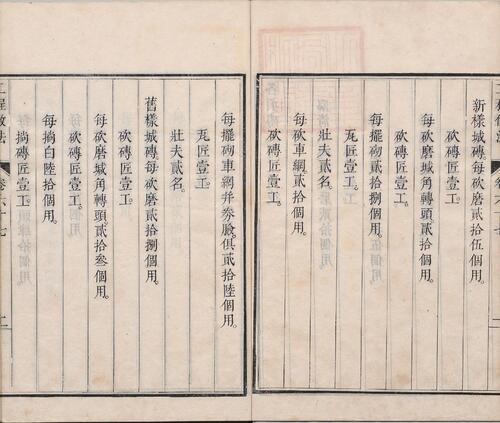 新樣城磚。每砍磨貳拾伍個用。
砍磚匠壹工。
每砍磨城角轉頭貳拾個用。
砍磚匠壹工。
每擺砌貳拾捌個用。
瓦匠壹工。
壯夫貳名。
每砍車網貳拾個用。
砍磚匠壹工。
每擺砌車網幷券臉俱貳拾陸個用。
瓦匠壹工。
壯夫貳名。
舊樣城磚。每砍磨貳拾捌個用。
砍磚匠壹工。
每砍磨城角轉頭貳拾叄個用。
砍磚匠壹工。
每㨄白陸拾個用。
㨄磚匠壹工。
工程做法
卷六十七